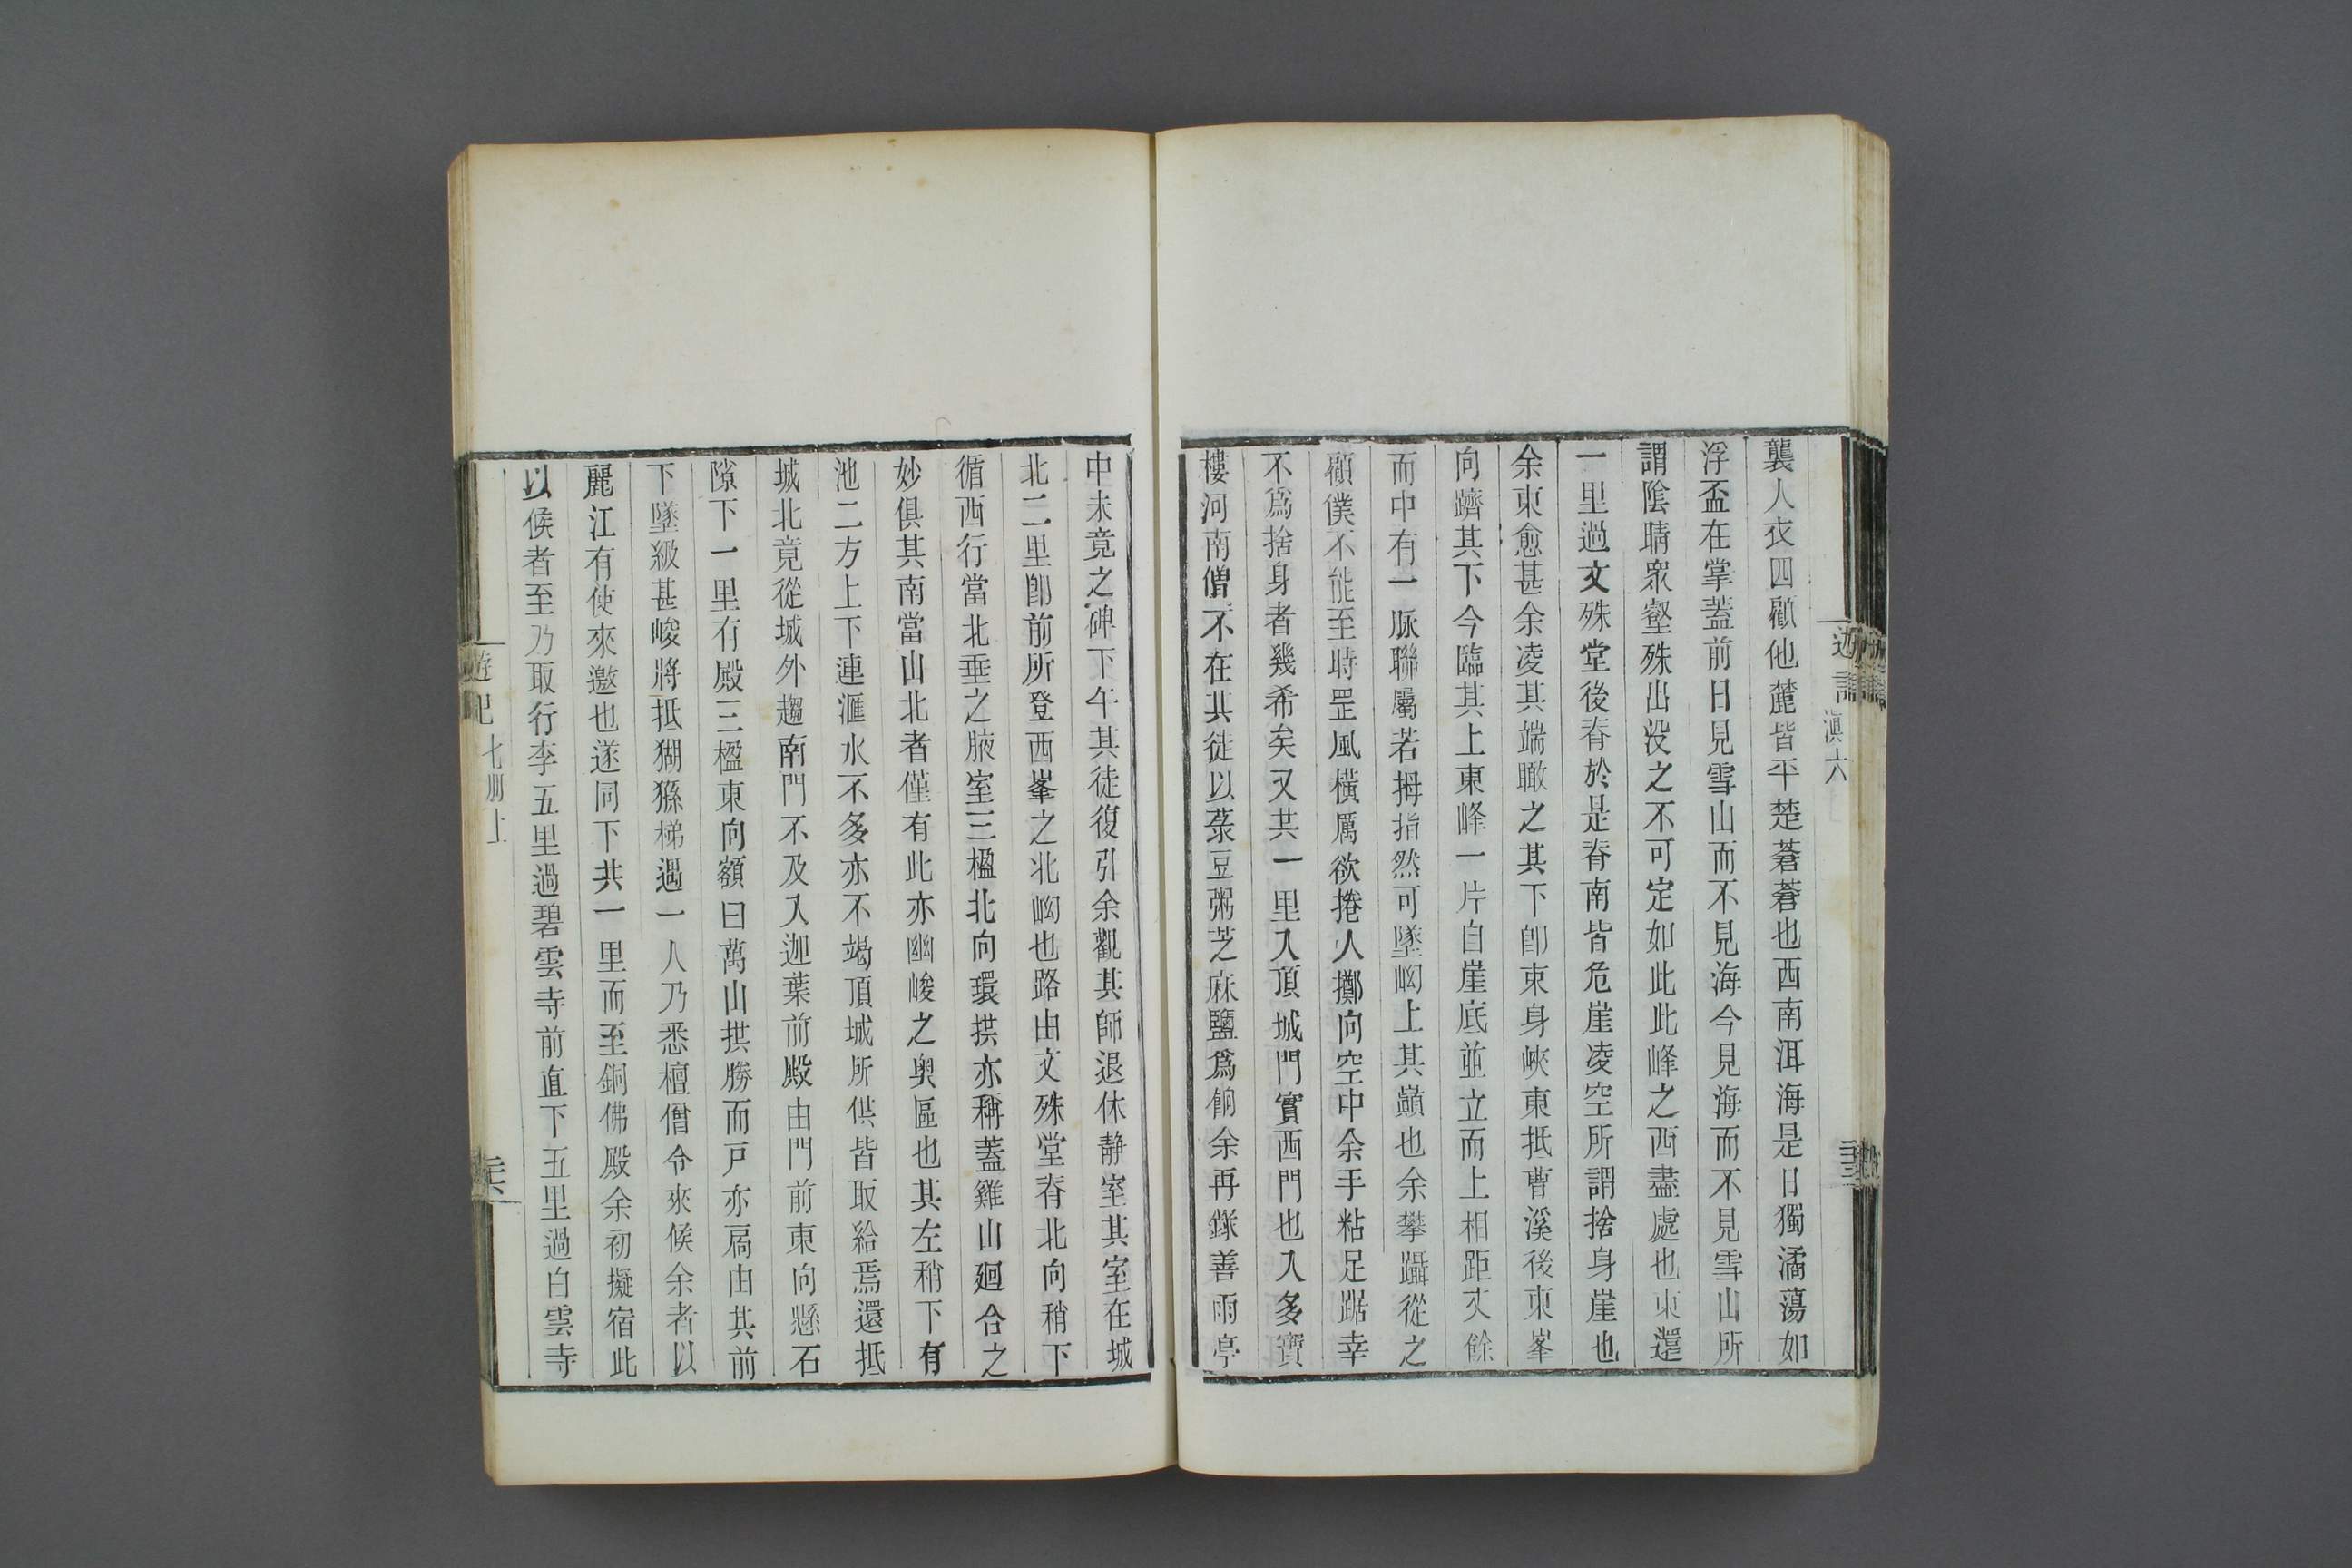 襲人衣四顧他麓皆平楚蒼蒼也西南洱海是日獨潏蕩如
浮盃在掌蓋前日見雪山而不見海今見海而不見雪山所
謂陰晴衆壑殊出没之不可定如此此峰之西盡處也東還
一里過文殊堂後脊於是脊南皆危崖凌空所謂捨身崖也
余東愈甚余凌其端瞰之其下卽束身峽東抵曹溪後東峯
向躋其下今臨其上東峰一片自崖底並立而上相距丈餘
而中有一脉聯屬若拇指然可墜岰上其巔也余攀躡從之
顧僕不能至時罡風橫厲欲捲人擲向空中余手粘足踞幸
不爲捨身者幾希矣又共一里入頂城門實西門也入多寶
樓河南僧不在其徒以菉豆粥芝麻鹽爲餉余再錄善雨亭
中未竟之碑下午其徒復引余觀其師退休静室其室在城
北二里卽前所登西峯之北岰也路由文殊堂脊北向稍下
循西行當北垂之腋室三楹北向環拱亦稱蓋雞山廻合之
妙俱其南當山北者僅有此亦幽峻之奥區也其左稍下有
池二方上下連滙水不多亦不竭頂城所供皆取給焉還抵
城北竟從城外趨南門不及入迦葉前殿由門前東向懸石
隙下一里有殿三楹東向額曰萬山拱勝而戸亦扃由其前
下墜級甚峻將抵猢猻梯遇一人乃悉檀僧令來候余者以
麗江有使來邀也遂同下共一里而至銅佛殿余初擬宿此
以候者至乃取行李五里過碧雲寺前直下五里過白雲寺
遊記 七册上